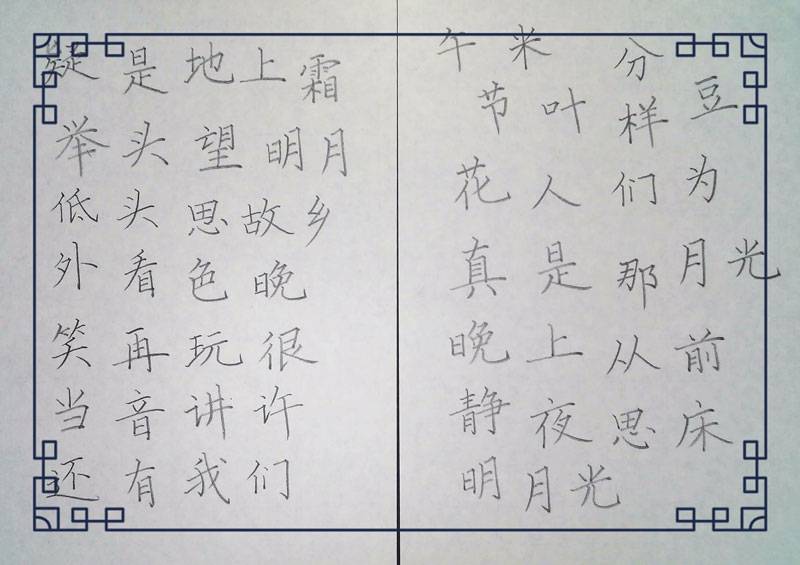 疑是地上霜
举头望明月
低头思故乡
外看色晚
笑再玩很
当音讲许
还有我们
午米分
节叶样豆
花人们为
真是那月光
晚上从前
静夜思床
明月光